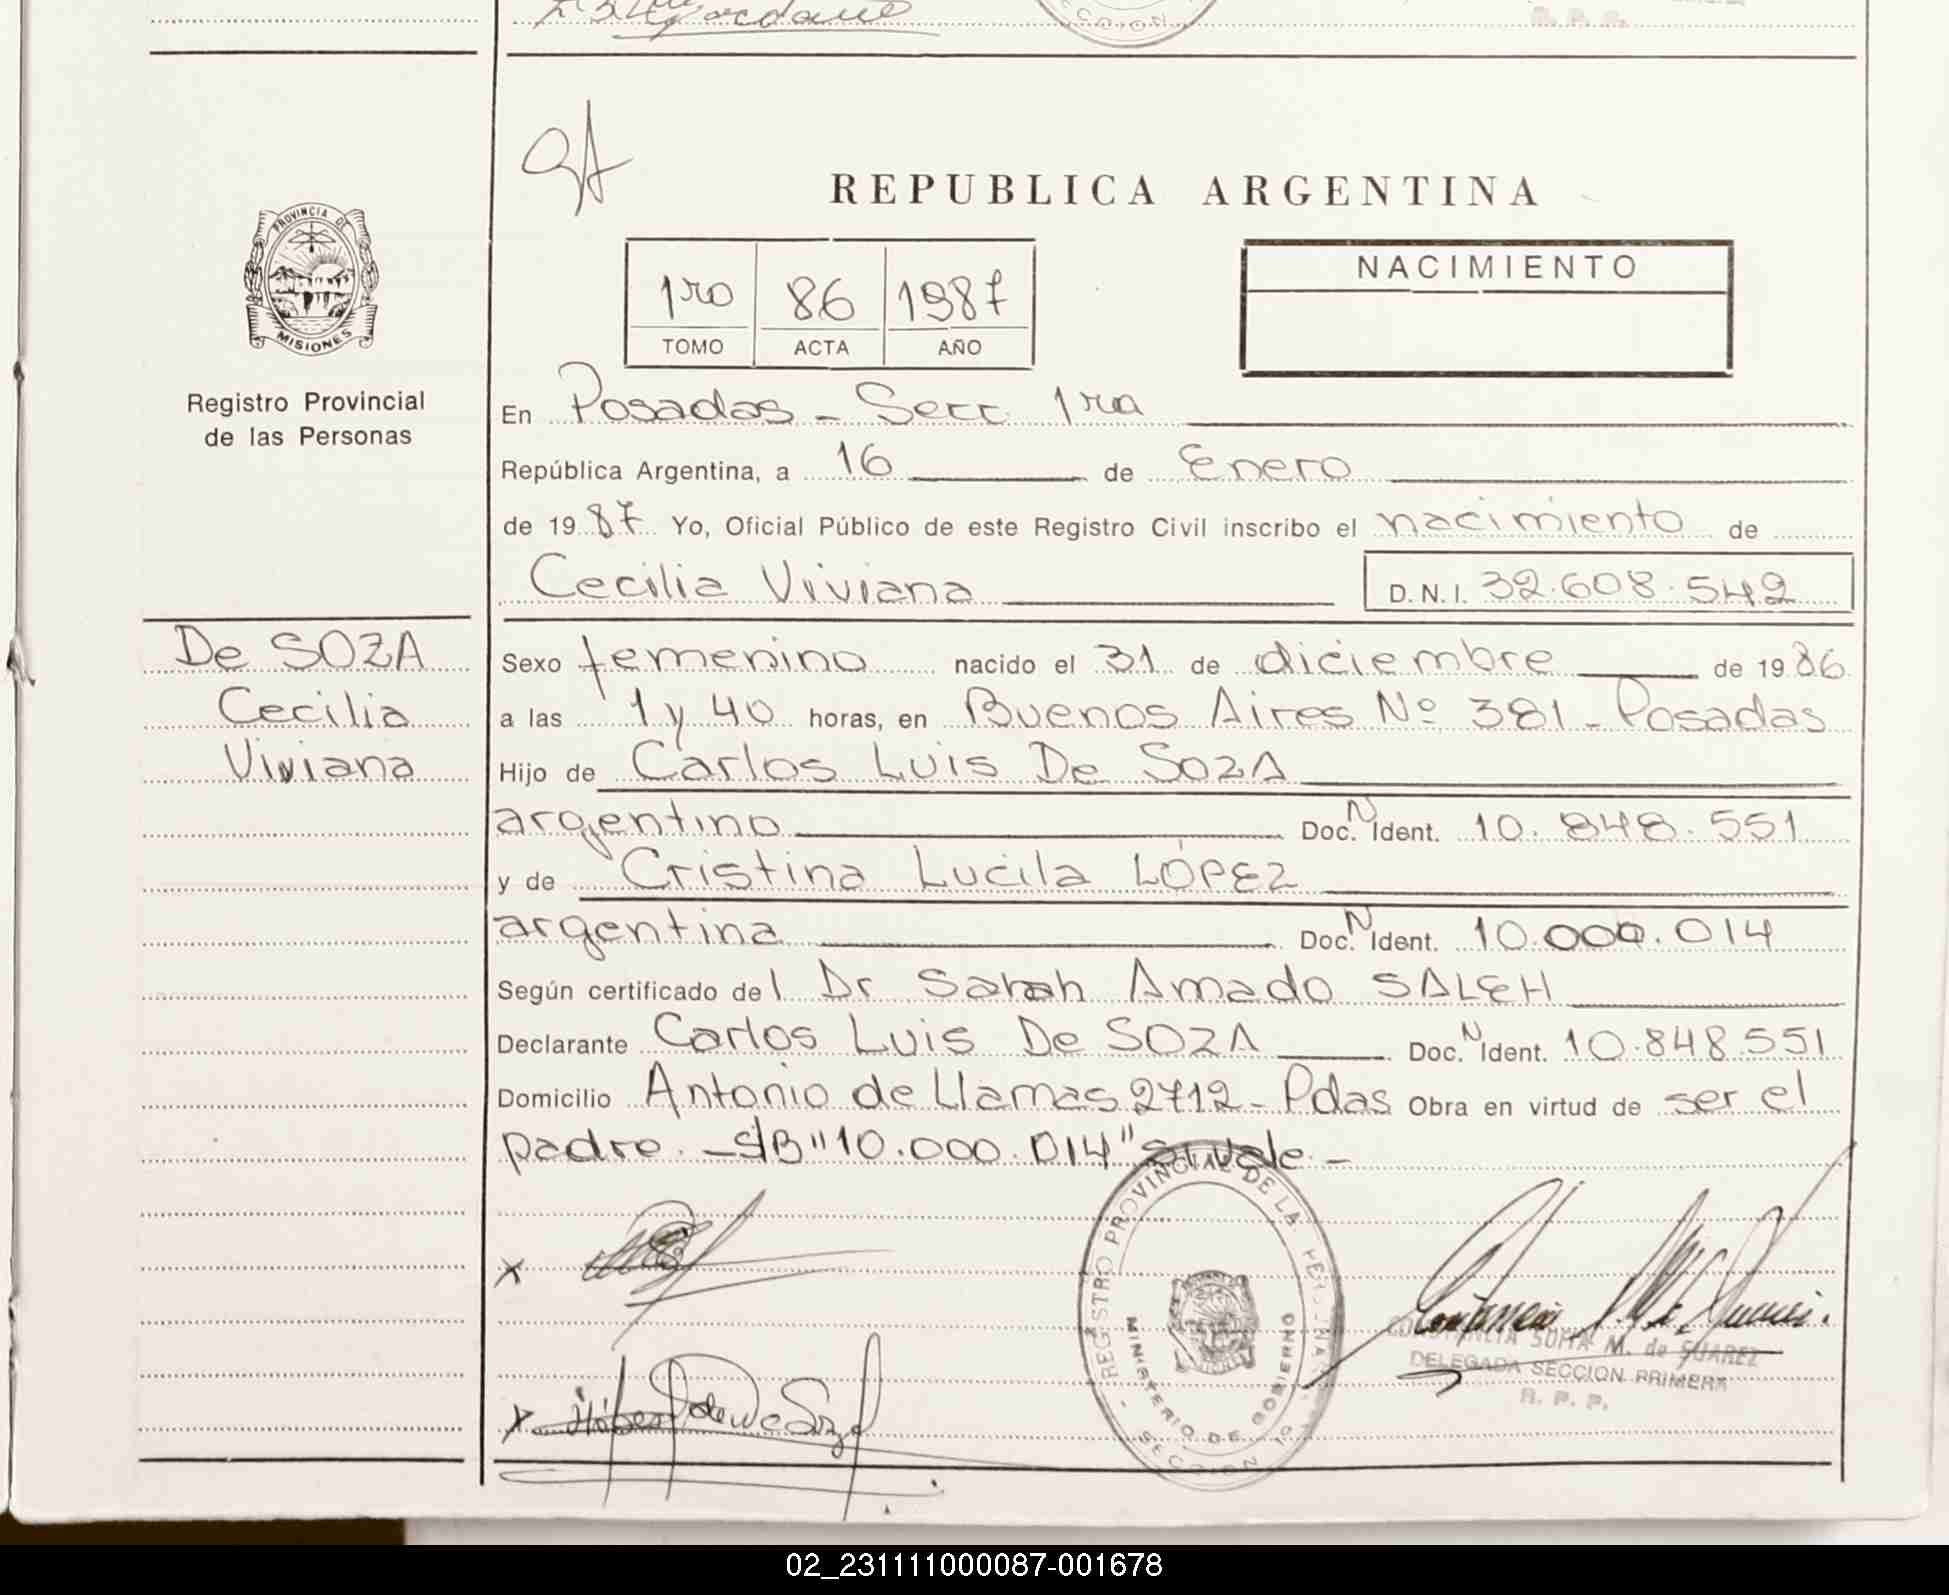 REPUBLICA ARGENTINA
PROVINCIA DE
MISIONES
Registro Provincial
de las Personas
1ro 86 1987
TOMO ACTA AÑO
NACIMIENTO
En Posadas - Secc. 1ra
República Argentina, a 16 de Enero
de 1987 Yo, Oficial Público de este Registro Civil inscribo el nacimiento de
Cecilia Viviana D.N.I. 32.608.542
De SOZA
Cecilia
Viviana
Sexo femenino nacido el 31 de diciembre de 1986
a las 1 y 40 horas, en Buenos Aires Nº 381 - Posadas
Hijo de Carlos Luis De SozA
argentino Doc. N Ident. 10.848.551
y de Cristina Lucila LÓPEZ
argentina Doc. N Ident. 10.000.014
Según certificado del Dr Sarah Amado SALEH
Declarante Carlos Luis De SOZA Doc. N Ident. 10.848.551
Domicilio Antonio de Llamas 2712 - Pdas Obra en virtud de ser el
padre. - S/B "10.000.014" si vale. -
REGISTRO PROVINCIAL DE LA
MINISTERIO DE GOBIERNO
SECCION
CONSTANCIA SUITA M. de SUAREZ
DELEGADA SECCION PRIMERA
R. P. P.
02_231111000087-001678